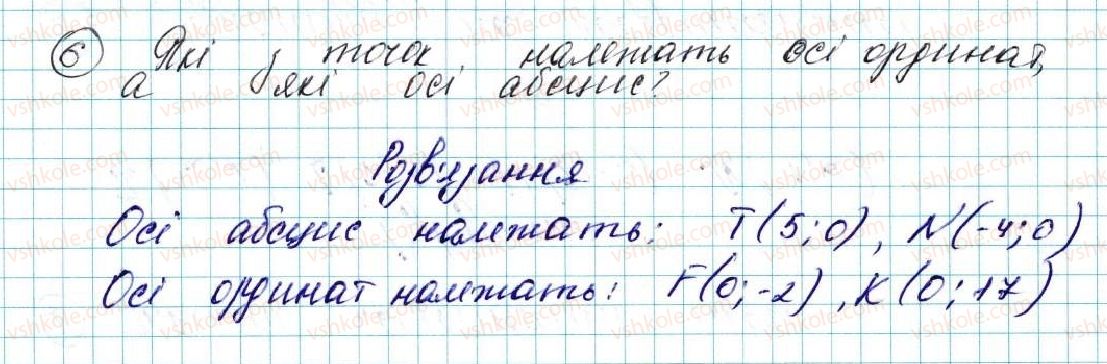 6 Які з точок належать осі ординат,
а які осі абсцис?
Розв'язання
Осі абсцис належать: T(5;0), N(-4;0)
Осі ординат належать: F(0;-2), K(0;17)